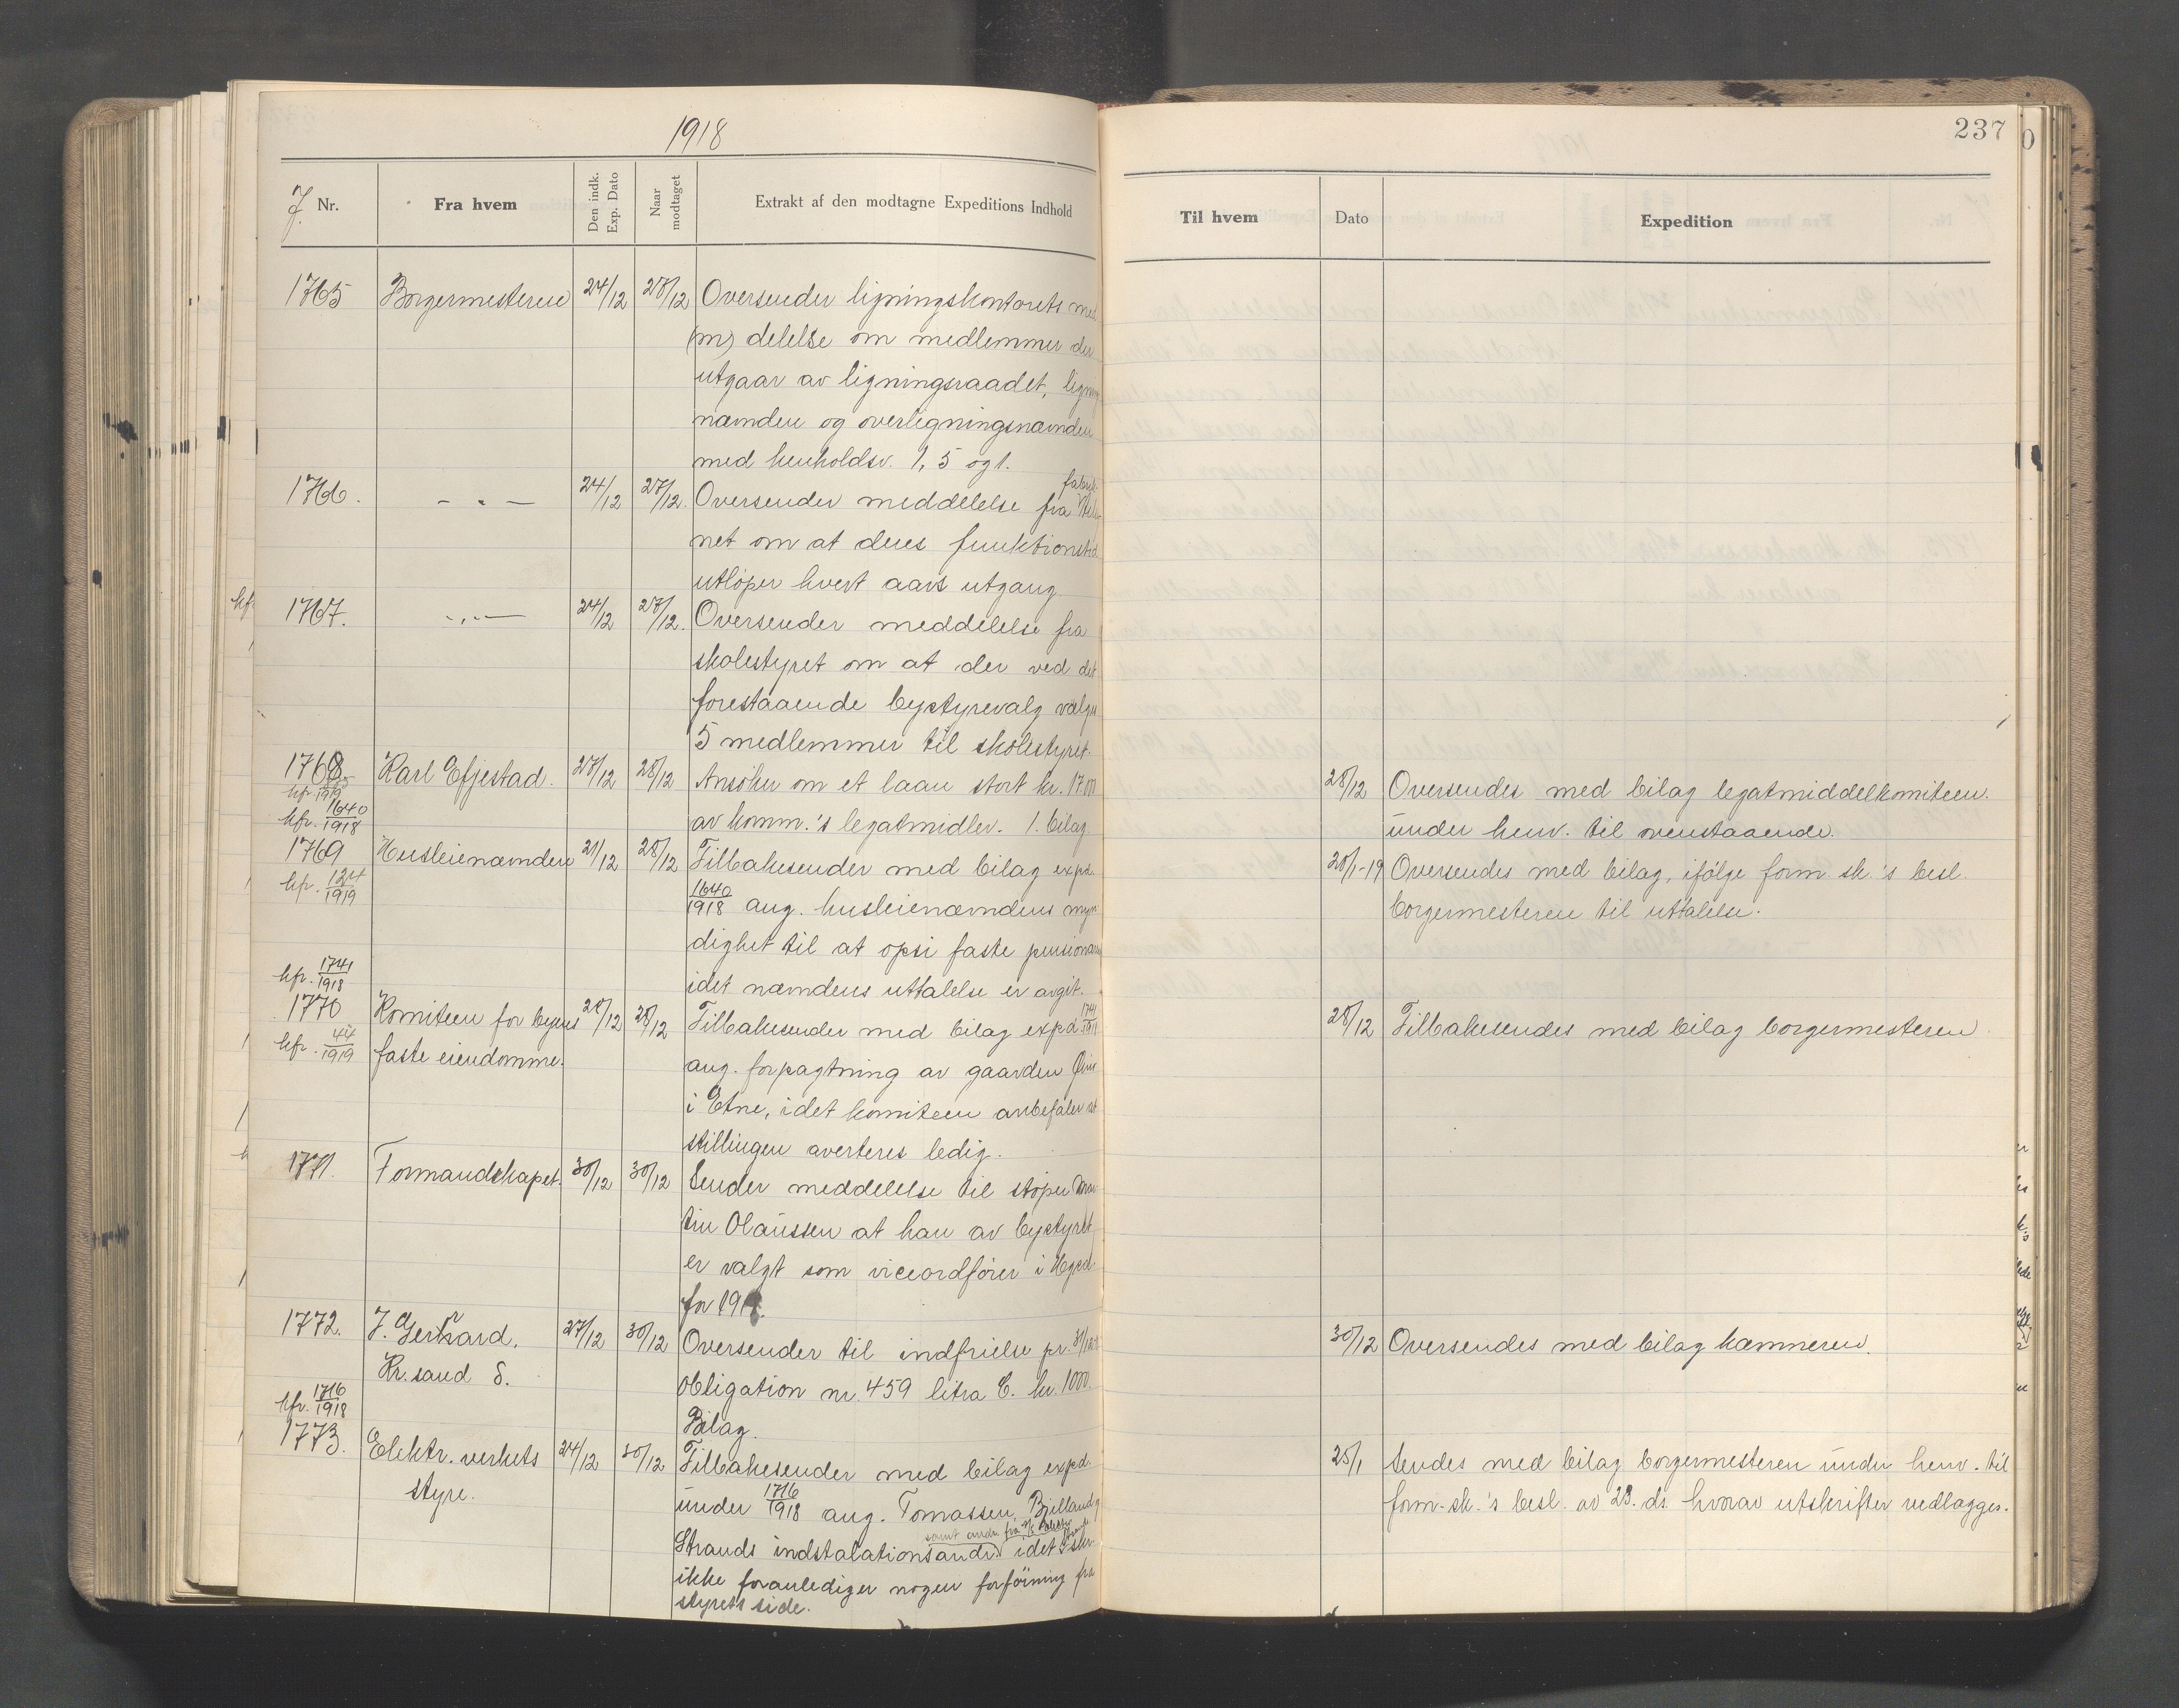 1918
237
J. Nr.
Fra hvem
Den indk. Exp. Dato
Naar modtaget
Extrakt af den modtagne Expeditions Indhold
Til hvem
Dato
Expedition
1765 Borgermesteren 24/12 28/12 Oversender ligningskontorets med
(m) delelse om medlemmer der
utgaar av ligningsraadet, lignings
nævnden og overligningsnævnden
med henholdsv. 1, 5 og 1.
1766. - " - 24/12 27/12. Oversender meddelelse fra
net om at deres funktionstid
utløper hvert aars utgang.
1767. - " - 24/12 27/12. Oversender meddelelse fra
skolestyret om at der ved det
forestaaende bystyrevalg vælges
5 medlemmer til skolestyret.
1768. Karl Efjestad. 27/12 28/12 Ansøker om et laan stort kr. 1700
hfr. 1919
hfr. 1640/1918 av komm.'s legatmidler. 1. bilag
28/12 Oversendes med bilag legatmiddelkomiteen.
under henv. til ovenstaaende.
1769 Husleienævnden 21/12 28/12 Tilbakesender med bilag expd.
hfr. 124/1919 1640/1918 ang. husleienævndens myn
dighet til at opsi faste pensionærer
idet nævndens uttalelse er avgit.
20/1-19 Oversendes med bilag, ifølge form. sk.'s besl.
borgermesteren til uttalelse.
hfr. 1741/1918
1770 Komiteen for byens 28/12 28/12 Tilbakesender med bilag expd. 1741/1918
hfr. 44/1919 faste eiendomme. ang. forpagtning av gaarden
i Etne, idet komiteen anbefaler at
stillingen averteres ledig.
28/12 Tilbakesendes med bilag borgermesteren.
1771. Formandskapet. 30/12 30/12 Sender meddelelse til støper Mar
tin Olaussen at han av bystyret
er valgt som viceordfører i Hgsd.
for 191
1772. J. Gerhard. 27/12 30/12 Oversender til indfrielse pr.
Kr.sand S. obligation nr. 459 litra C. kr. 1000.
Bilag.
30/12 Oversendes med bilag kæmneren.
hfr. 1716/1918
1773. Elektr. verkets 24/12 30/12 Tilbakesender med bilag expd.
styre. under 1716/1918 ang. Tomassen, Bjelland &
samt andr. fra
Strands indstalationsandr. idet
ikke foranlediger nogen forføining fra
styrets side.
25/1 Sendes med bilag borgermesteren under henv. til
form.-sk.'s besl. av 23. ds. hvorav utskrifter vedlægges.